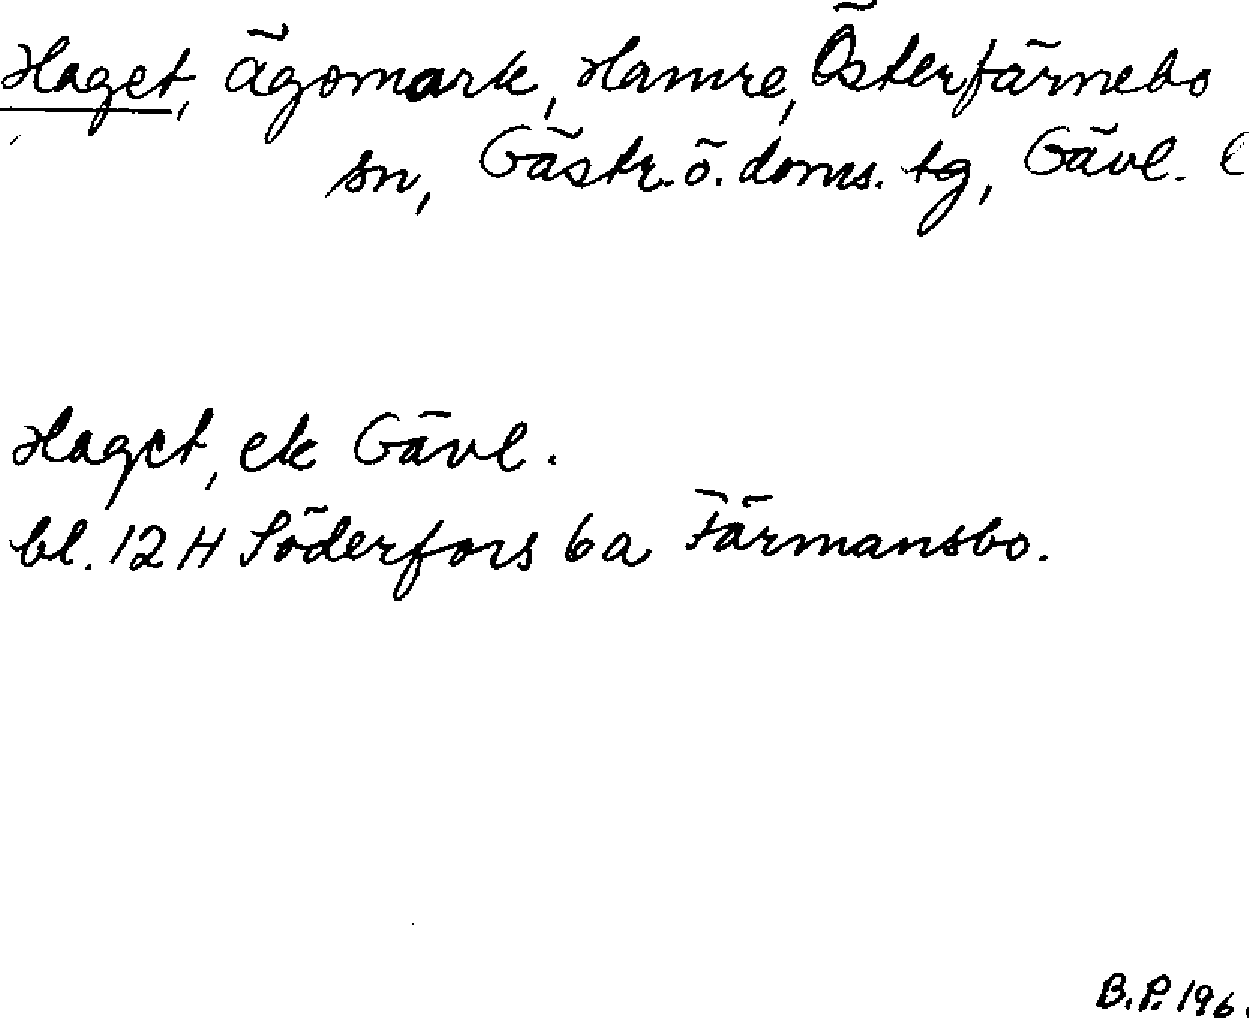 Haget, ägomark, Hamre, Österfärnebo
sn, Gästr. ö. doms. tg, Gävl.
Haget, ek Gävl.
bl. 12 H Söderfors 6a Färmansbo.
B.P. 196